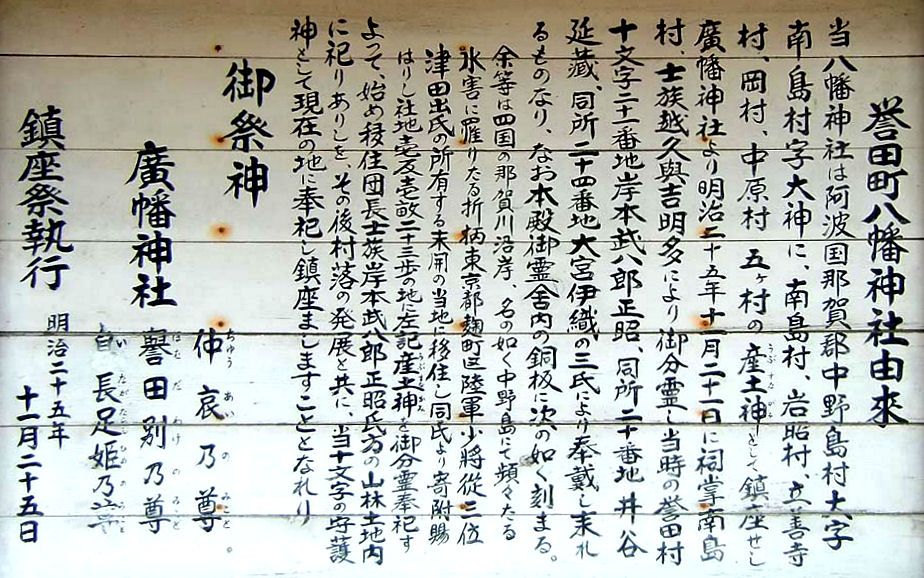 誉田町八幡神社由来
当八幡神社は阿波国那賀郡中野島村大字
南島村字大神に、南島村、岩脇村、立善寺
村、岡村、中原村 五ヶ村の産土神として鎮座せし
廣幡神社より明治二十五年十一月二十二日に祠掌、南島
村、士族越久與吉明多により御分霊し当時の誉田村
十文字二十一番地岸本武八郎正昭、同所二十番地 井谷
延藏、同所二十四番地大宮伊織の三氏により奉戴し来れ
るものなり、なお本殿御霊舎内の銅板に次の如く刻まる。
余等は四国の那賀川沿岸、名の如く中野島にて頻々たる
水害に罹りたる折柄東京都麹町区陸軍少將従三位
津田出氏の所有する未開の当地に移住し同氏より寄附賜
はりし社地壱反壱畝二十三歩の地に左記産土神を御分霊奉祀す
よって、始め移住団長士族岸本武八郎正昭氏方の山林土地内
に祀りありしを、その後村落の発展と共に、当十文字の守護
神として現在の地に奉祀し鎮座ましますこととなれり
御祭神
廣幡神社
仲哀乃尊
譽田別乃尊
長足姫乃
鎮座祭執行
明治二十五年
十一月二十五日